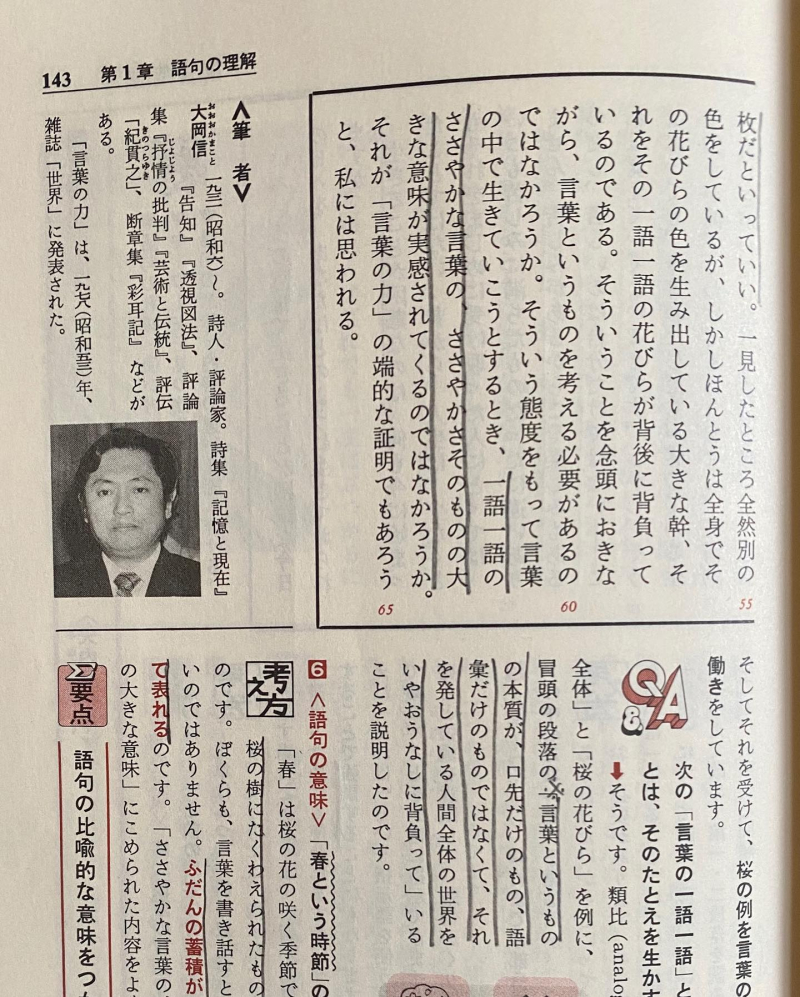 143 第1章 語句の理解
枚だといっていい。一見したところ全然別の
55
色をしているが、しかしほんとうは全身でそ
の花びらの色を生み出している大きな幹、そ
れをその一語一語の花びらが背後に背負って
いるのである。そういうことを念頭におきな
がら、言葉というものを考える必要があるの
60
ではなかろうか。そういう態度をもって言葉
の中で生きていこうとするとき、一語一語の
ささやかな言葉の、ささやかさそのものの大
きな意味が実感されてくるのではなかろうか。
それが「言葉の力」の端的な証明でもあろう
65
と、私には思われる。
<筆 者>
大岡信 一九三一(昭和六)〜。詩人・評論家。詩集『記憶と現在』
『告知』『透視図法』、評論
集『抒情の批判』『芸術と伝統』、評伝
『紀貫之』、断章集『彩耳記』などが
ある。
「言葉の力」は、一九七八(昭和五三)年、
雑誌「世界」に発表された。
そしてそれを受けて、桜の例を言葉の
働きをしています。
Q&A
次の「言葉の一語一語」と
とは、そのたとえを生かす
そうです。類比(analog
全体」と「桜の花びら」を例に、
冒頭の段落の「言葉というもの
の本質が、口先だけのもの、語
彙だけのものではなくて、それ
を発している人間全体の世界を
いやおうなしに背負って」いる
ことを説明したのです。
6 <語句の意味>「春という時節」の
考え方
「春」は桜の花の咲く季節で
桜の樹にたくわえられたもの
のです。ぼくらも、言葉を書き話すと
いのではありません。ふだんの蓄積が
て表れるのです。「ささやかな言葉の
の大きな意味」にこめられた内容をよ
要点
語句の比喩的な意味をつ